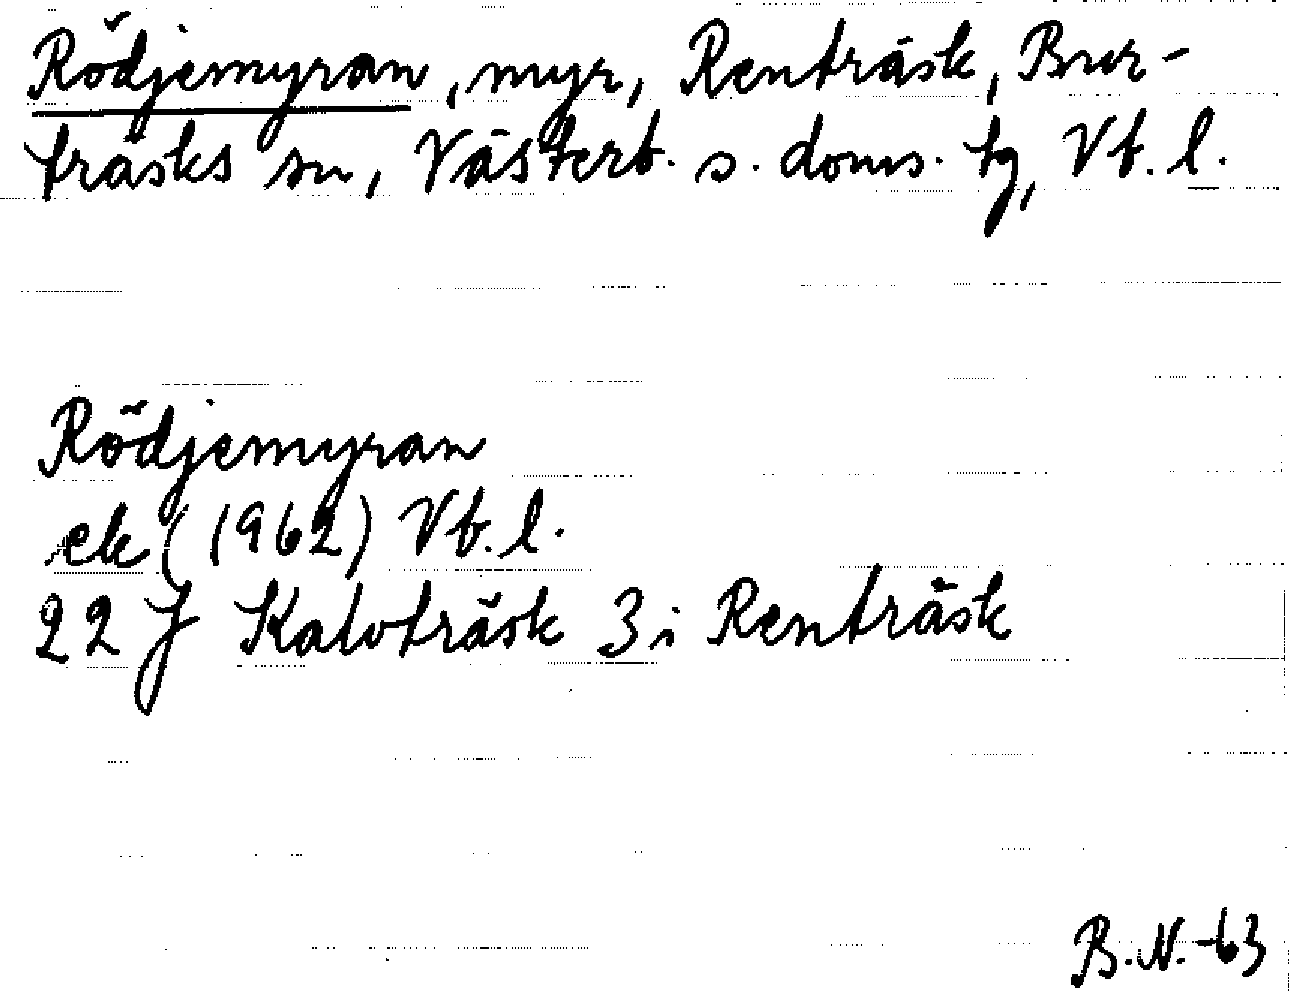 Rödjemyran, myr, Renträsk, Bur-
träsks sn, Västerb. s. doms. tg, Vb. l.
Rödjemyran
ek (1962) Vb. l.
22 J Kalvträsk 3 i Renträsk
B.N.-63